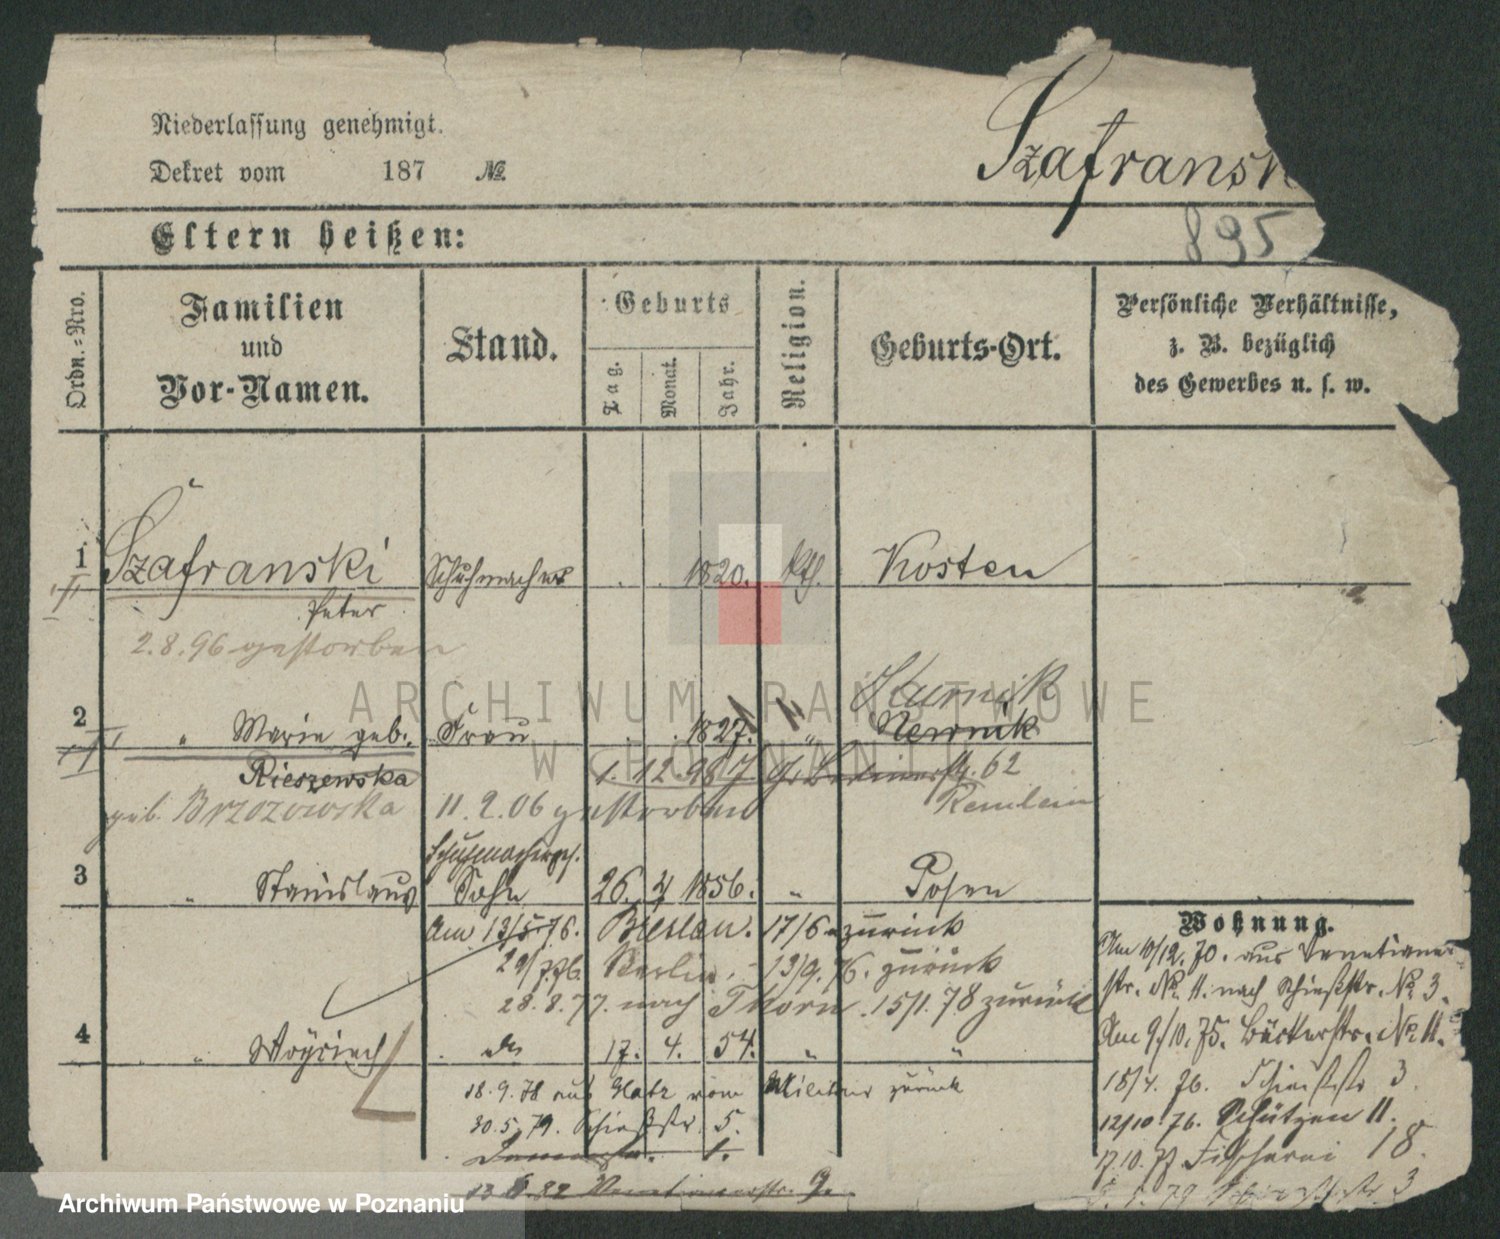 Niederlassung genehmigt.
Dekret vom 187 №
Szafransk
895
Eltern heißen:
Ordn.=Nro.
Familien
und
Vor-Namen.
Stand.
Geburts
Tag.
Monat.
Jahr.
Religion.
Geburts-Ort.
Persönliche Verhältnisse,
z. B. bezüglich
des Gewerbes u. s. w.
1 Szafranski Schuhmacher 1820. kth. Kosten
Peter
2.8.96 gestorben
Kurnik
2 " Marie geb. Frau 1827. " Nernik
Rieszewska 1.12.98 J. Gr. Berlinerstr. 62
geb. Brzozowska 11.2.06 gestorben
Schuhmacherges.
3 " Stanislaus Sohn 26. 4 1856. " Posen
Am 13/5 76. Breslau. 17/6 zurück
29/7 76 Berlin, - 13/9. 76. zurück
28.8.77. nach Thorn. 15/1.78 zurück
4 " Woyciech do 17. 4. 54. " "
18.9.78 aus Glatz vom Militair zurück
30.5.79. Schießstr. 5.
1.
13 82 Venetianerstr. 9.
Wohnung.
Am 10/12. 70. aus Venetianer
str. No. 11. nach Schießstr. No 3.
Am 9/10. 75. Bäckerstr. No. 11.
18/4. 76. Schießstr 3.
12/10 76. Schützen 11.
17.10.77 Fischerei 18
79 Schießstr. 3
ARCHIWUM PAŃSTWOWE
W POZNANIU
Archiwum Państwowe w Poznaniu